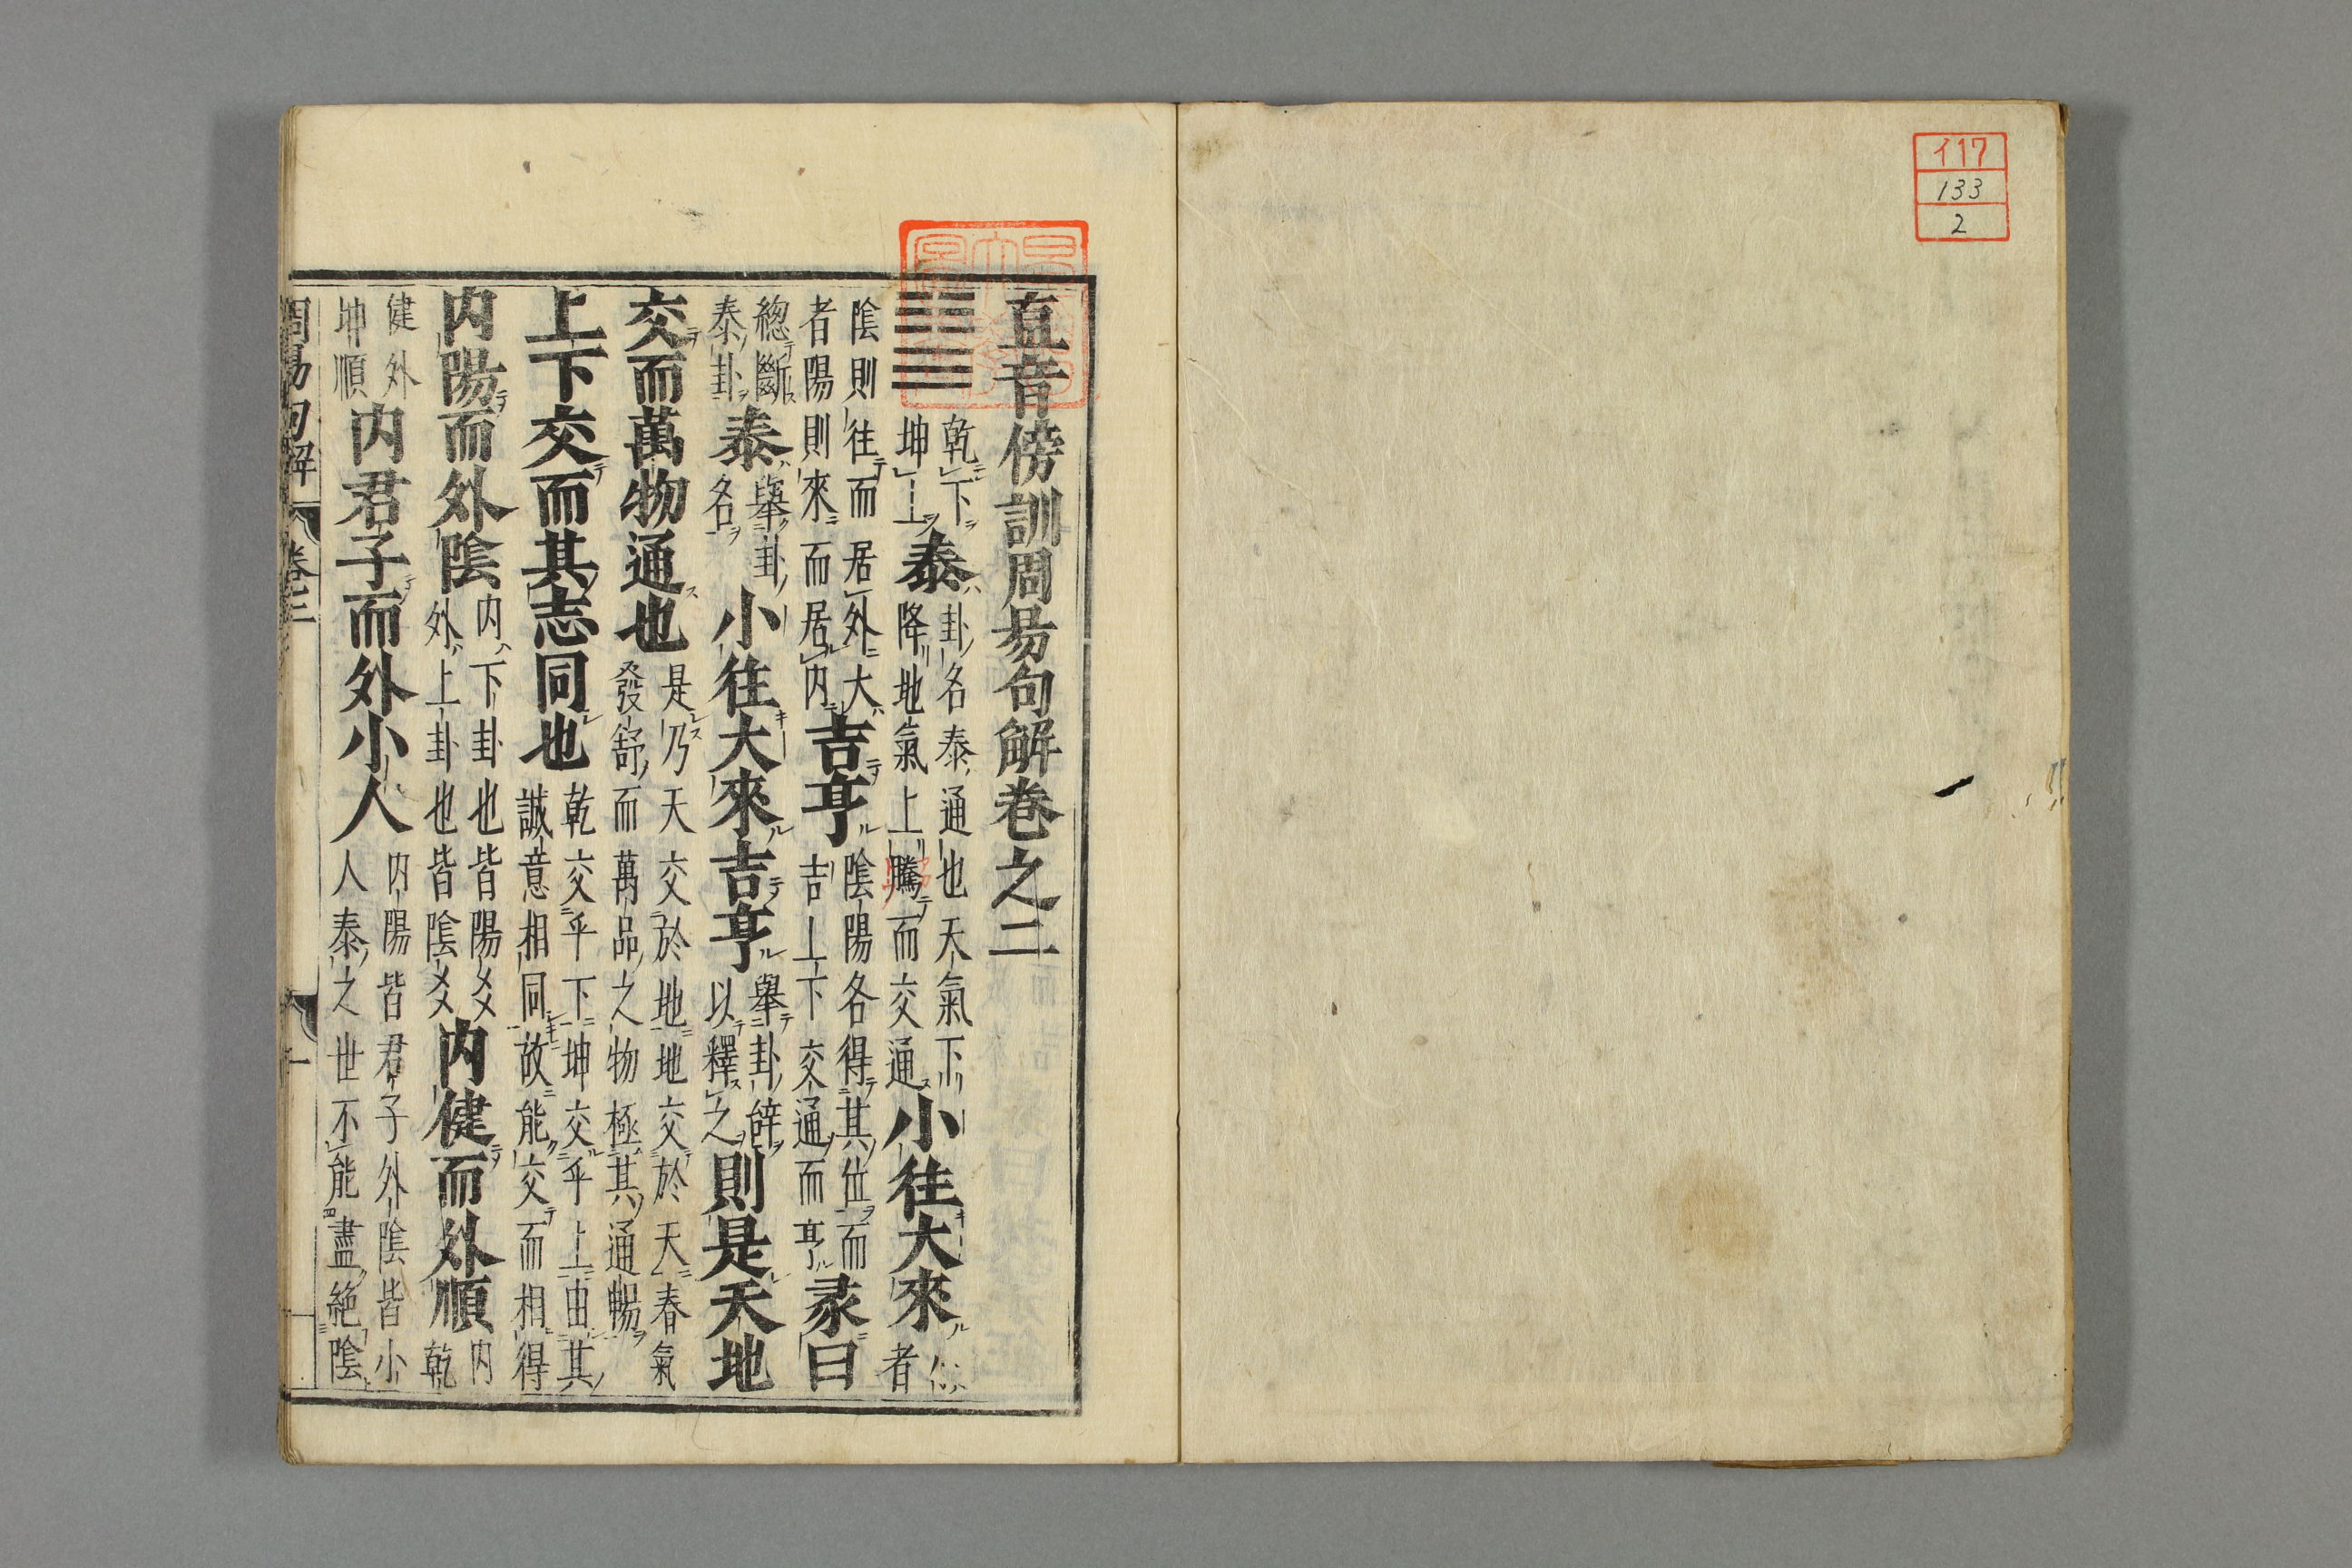 イ17
133
2
直音傍訓周易句解卷之二
乾下坤上泰卦名泰通也天氣下降地氣上騰而交通小往大來小者
陰則往而居外大者陽則來而居内吉亨陰陽各得其位而吉上下交通而亨彖曰
總斷泰卦泰舉卦名小往大來吉亨舉卦辭以釋之則是天地
交而萬物通也是乃天交於地地交於天春氣發舒而萬品之物極其通暢
上下交而其志同也乾交乎下坤交乎上由其誠意相同故能交而相得
内陽而外陰内下卦也皆陽爻外上卦也皆陰爻内健而外順内乾
健外坤順内君子而外小人内陽皆君子外陰皆小人泰之世不能盡絶陰
周易句解 卷二 一